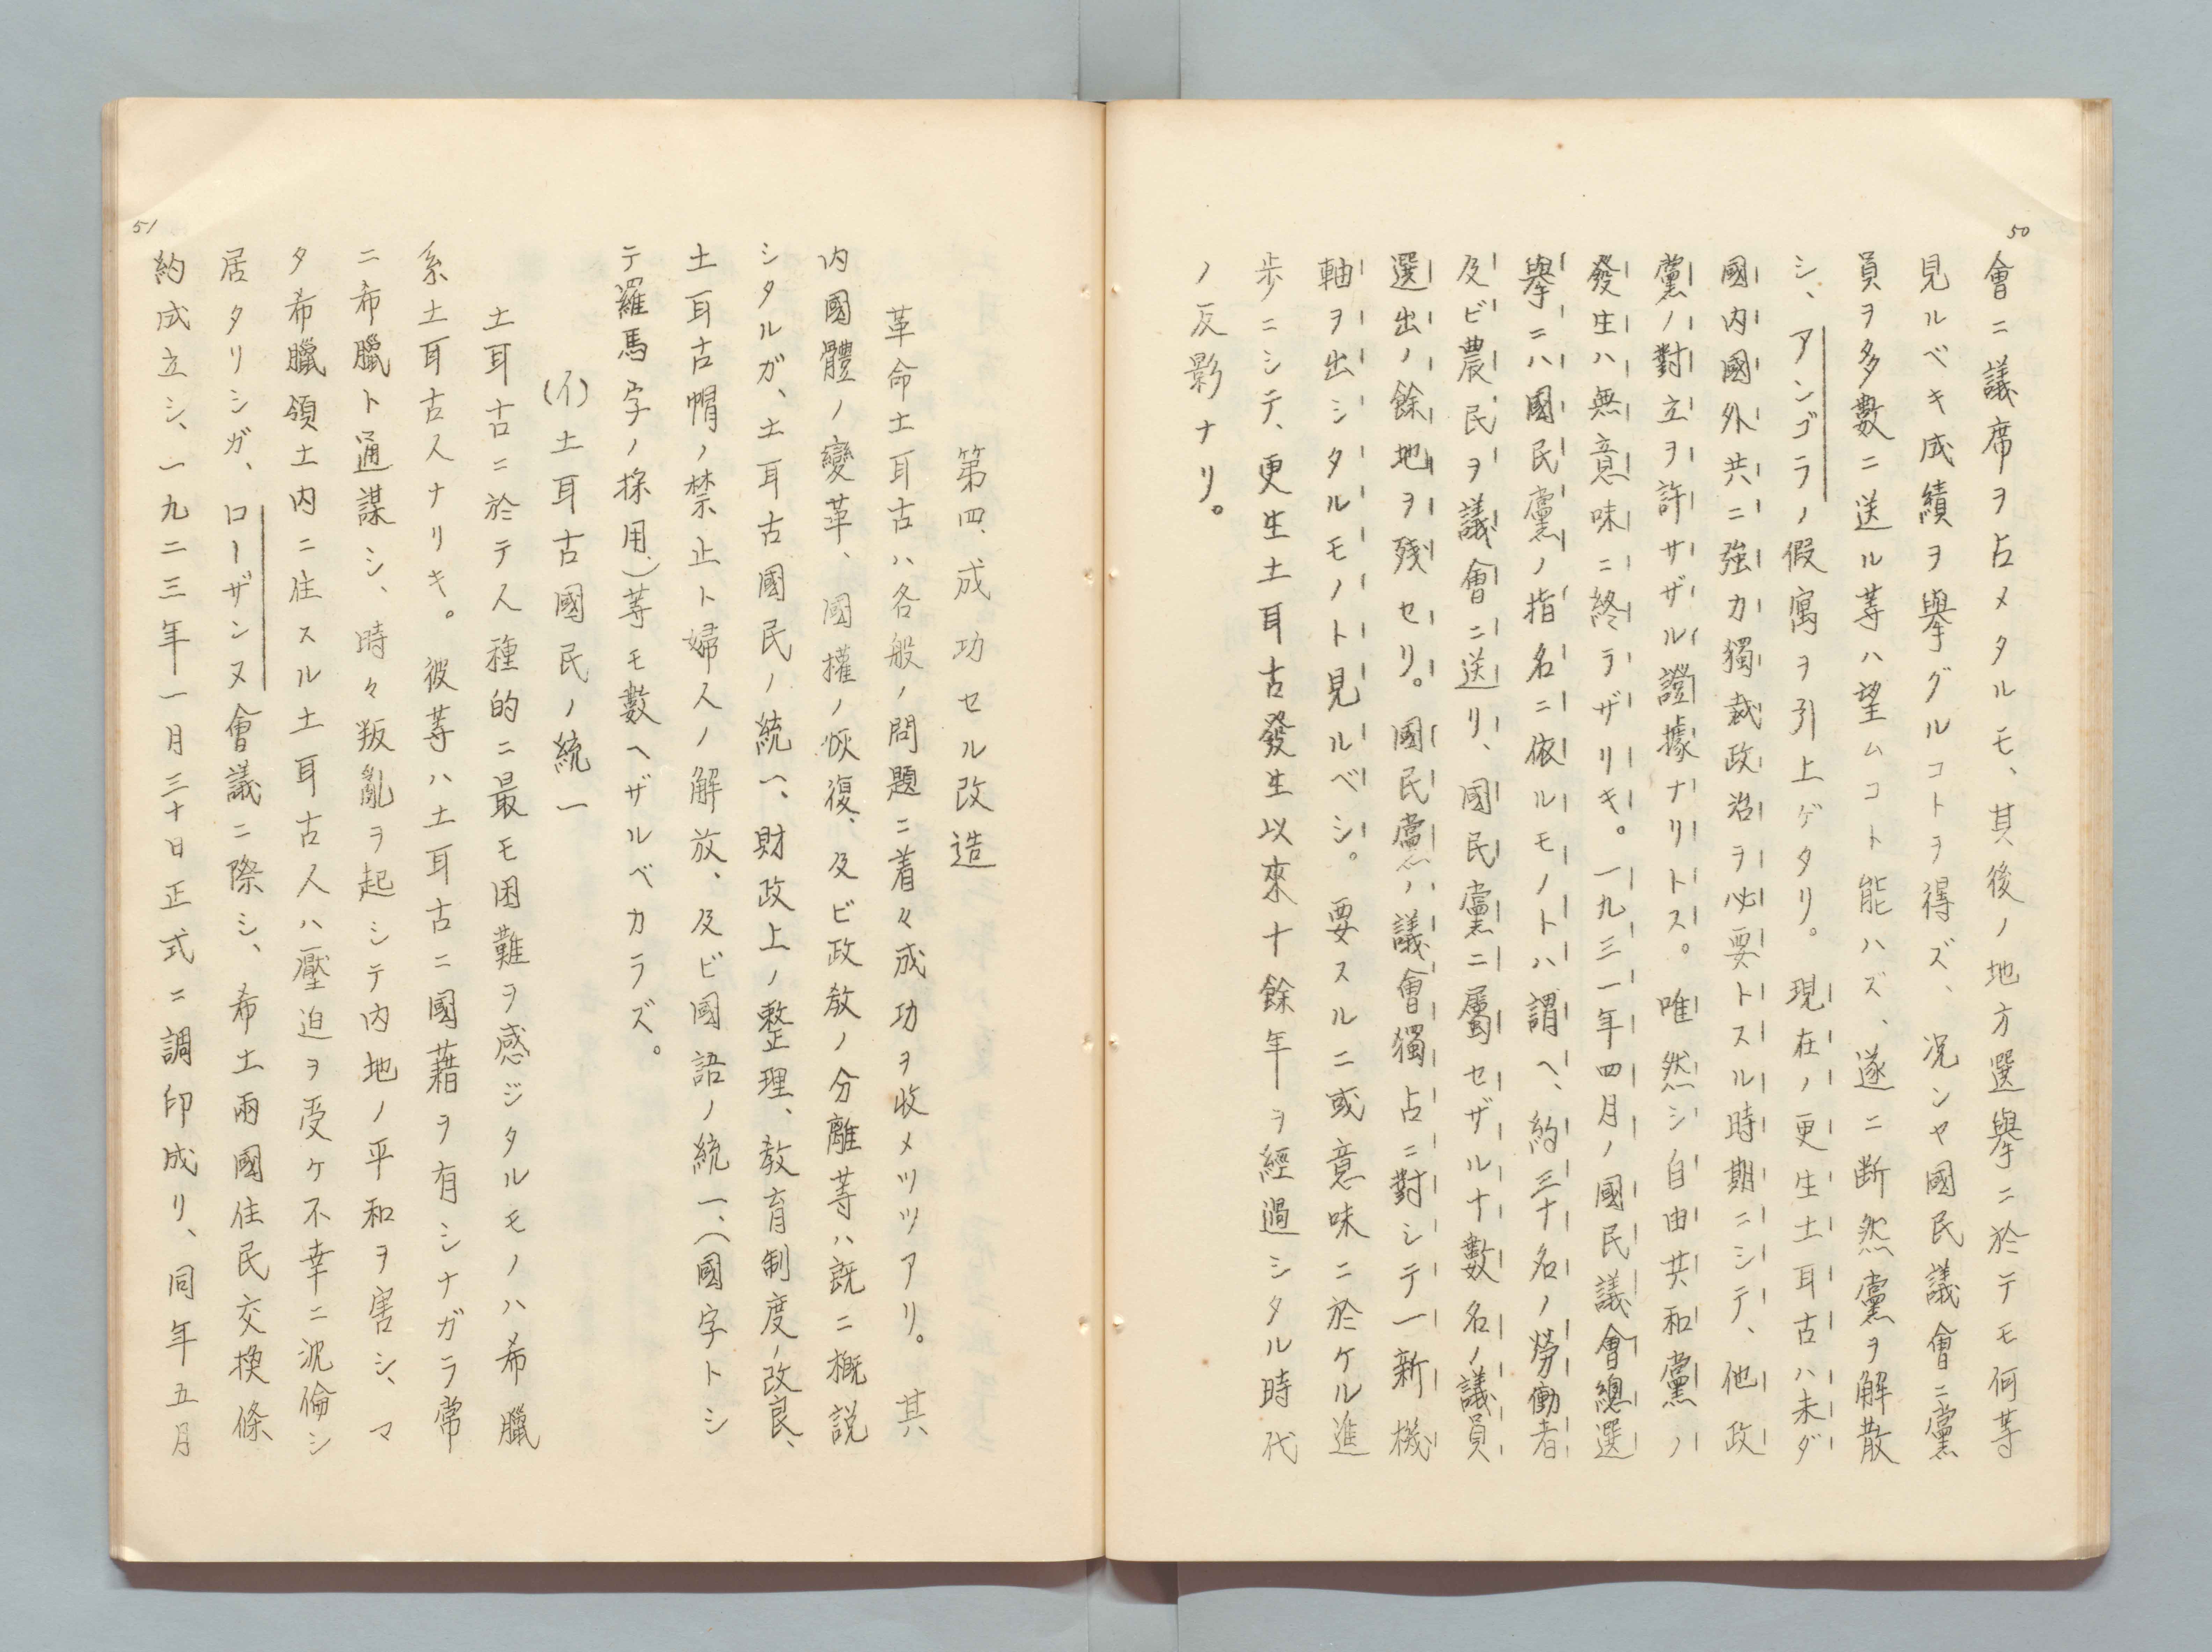 50
會ニ議席ヲ占メタルモ、其後ノ地方選擧ニ於テモ何等
見ルベキ成績ヲ擧グルコトヲ得ズ、況ンヤ國民議會ニ黨
員ヲ多數ニ送ル等ハ望ムコト能ハズ、遂ニ断然黨ヲ解散
シ、アンゴラノ假寓ヲ引上ゲタリ。現在ノ更生土耳古ハ未ダ
國内國外共ニ強力獨裁政治ヲ必要トスル時期ニシテ、他政
黨ノ對立ヲ許サザル證據ナリトス。唯然シ自由共和黨ノ
發生ハ無意味ニ終ラザリキ。一九三一年四月ノ國民議會總選
擧ニハ國民黨ノ指名ニ依ルモノトハ謂ヘ、約三十名ノ勞働者
及ビ農民ヲ議會ニ送リ、國民黨ニ屬セザル十數名ノ議員
選出ノ餘地ヲ殘セリ。國民黨ノ議會獨占ニ對シテ一新機
軸ヲ出シタルモノト見ルベシ。要スルニ或意味ニ於ケル進
歩ニシテ、更生土耳古發生以來十餘年ヲ經過シタル時代
ノ反影ナリ。
第四、成功セル改造
革命土耳古ハ各般ノ問題ニ着々成功ヲ收メツツアリ。其
内國體ノ變革、國權ノ恢復、及ビ政教ノ分離等ハ既ニ概説
シタルガ、土耳古國民ノ統一、財政上ノ整理、教育制度ノ改良、
土耳古帽ノ禁止ト婦人ノ解放、及ビ國語ノ統一、(國字トシ
テ羅馬字ノ採用、)等モ數ヘザルベカラズ。
(イ)土耳古國民ノ統一
土耳古ニ於テ人種的ニ最モ困難ヲ感ジタルモノハ希臘
系土耳古人ナリキ。彼等ハ土耳古ニ國藉ヲ有シナガラ常
ニ希臘ト通謀シ、時々叛亂ヲ起シテ内地ノ平和ヲ害シ、マ
タ希臘領土内ニ住スル土耳古人ハ壓迫ヲ受ケ不幸ニ沈倫シ
居タリシガ、ローザンヌ會議ニ際シ、希土兩國住民交換條
約成立シ、一九二三年一月三十日正式ニ調印成リ、同年五月
51